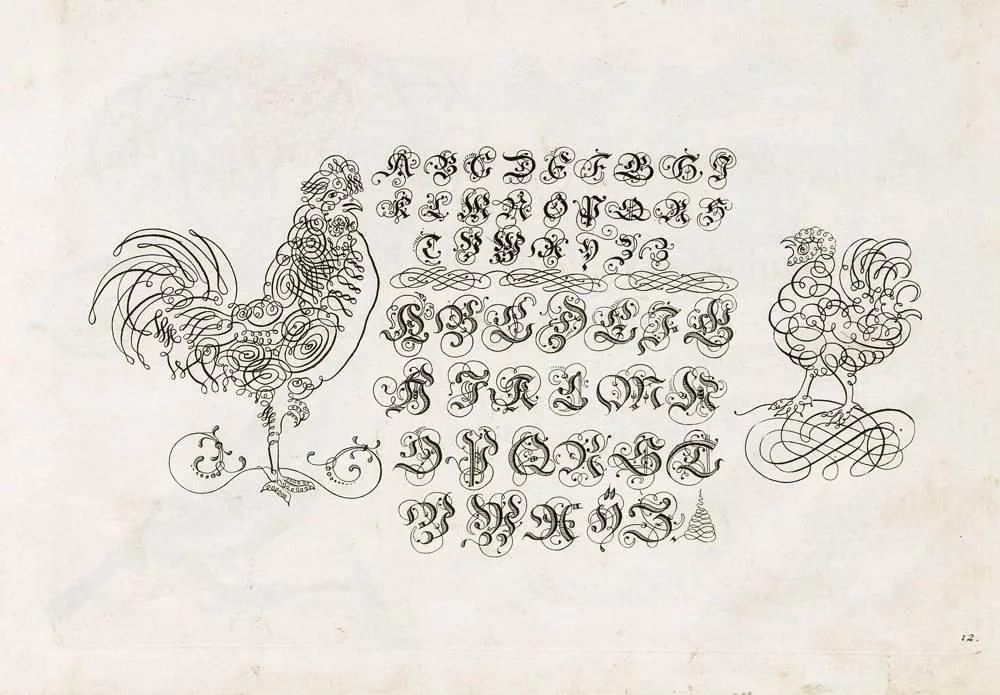 A B C D E F G H I
K L M N O P Q R S
T V W X Y Z Z
A B C D E F G
H I K L M N
O P Q R S T
V W X Ÿ Z
12.